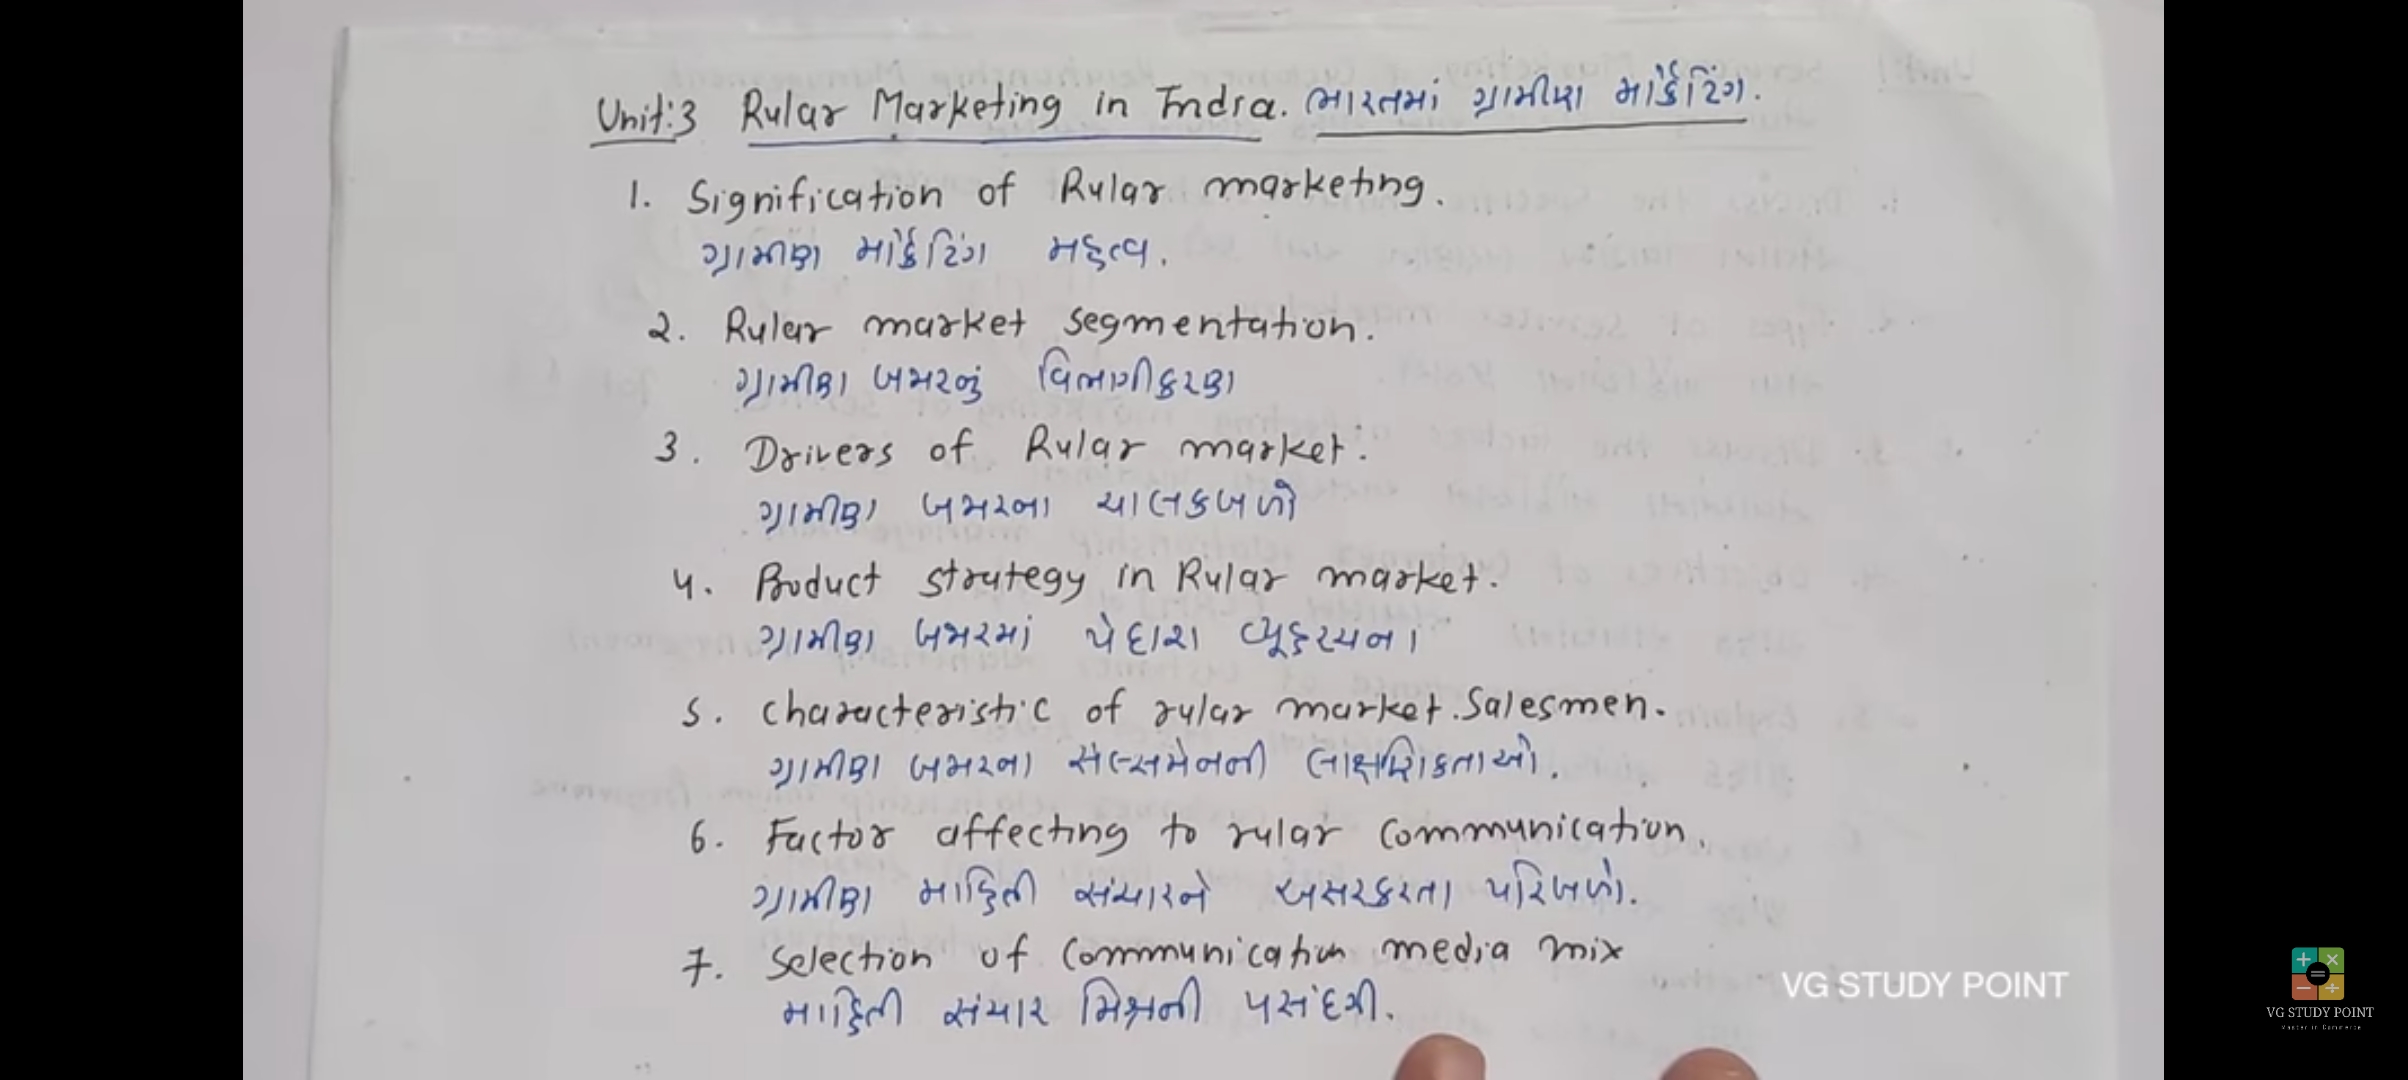 Unit:3 Rular Marketing in India. ભારતમાં ગ્રામીણ માર્કેટિંગ.
1. Signification of Rular marketing.
ગ્રામીણ માર્કેટિંગ મહત્વ.
2. Rular market segmentation.
ગ્રામીણ બજારનું વિભાગીકરણ
3. Drivers of Rular market.
ગ્રામીણ બજારના ચાલકબળો
4. Product strategy in Rular market.
ગ્રામીણ બજારમાં પેદાશ વ્યૂહરચના
5. Characteristic of rular market. Salesmen.
ગ્રામીણ બજારના સેલ્સમેનની લાક્ષણિકતાઓ.
6. Factor affecting to rular communication.
ગ્રામીણ માહિતી સંચારને અસરકરતા પરિબળો.
7. Selection of Communication media mix
માહિતી સંચાર મિશ્રની પસંદગી.
VG STUDY POINT
VG STUDY POINT
Master in Commerce